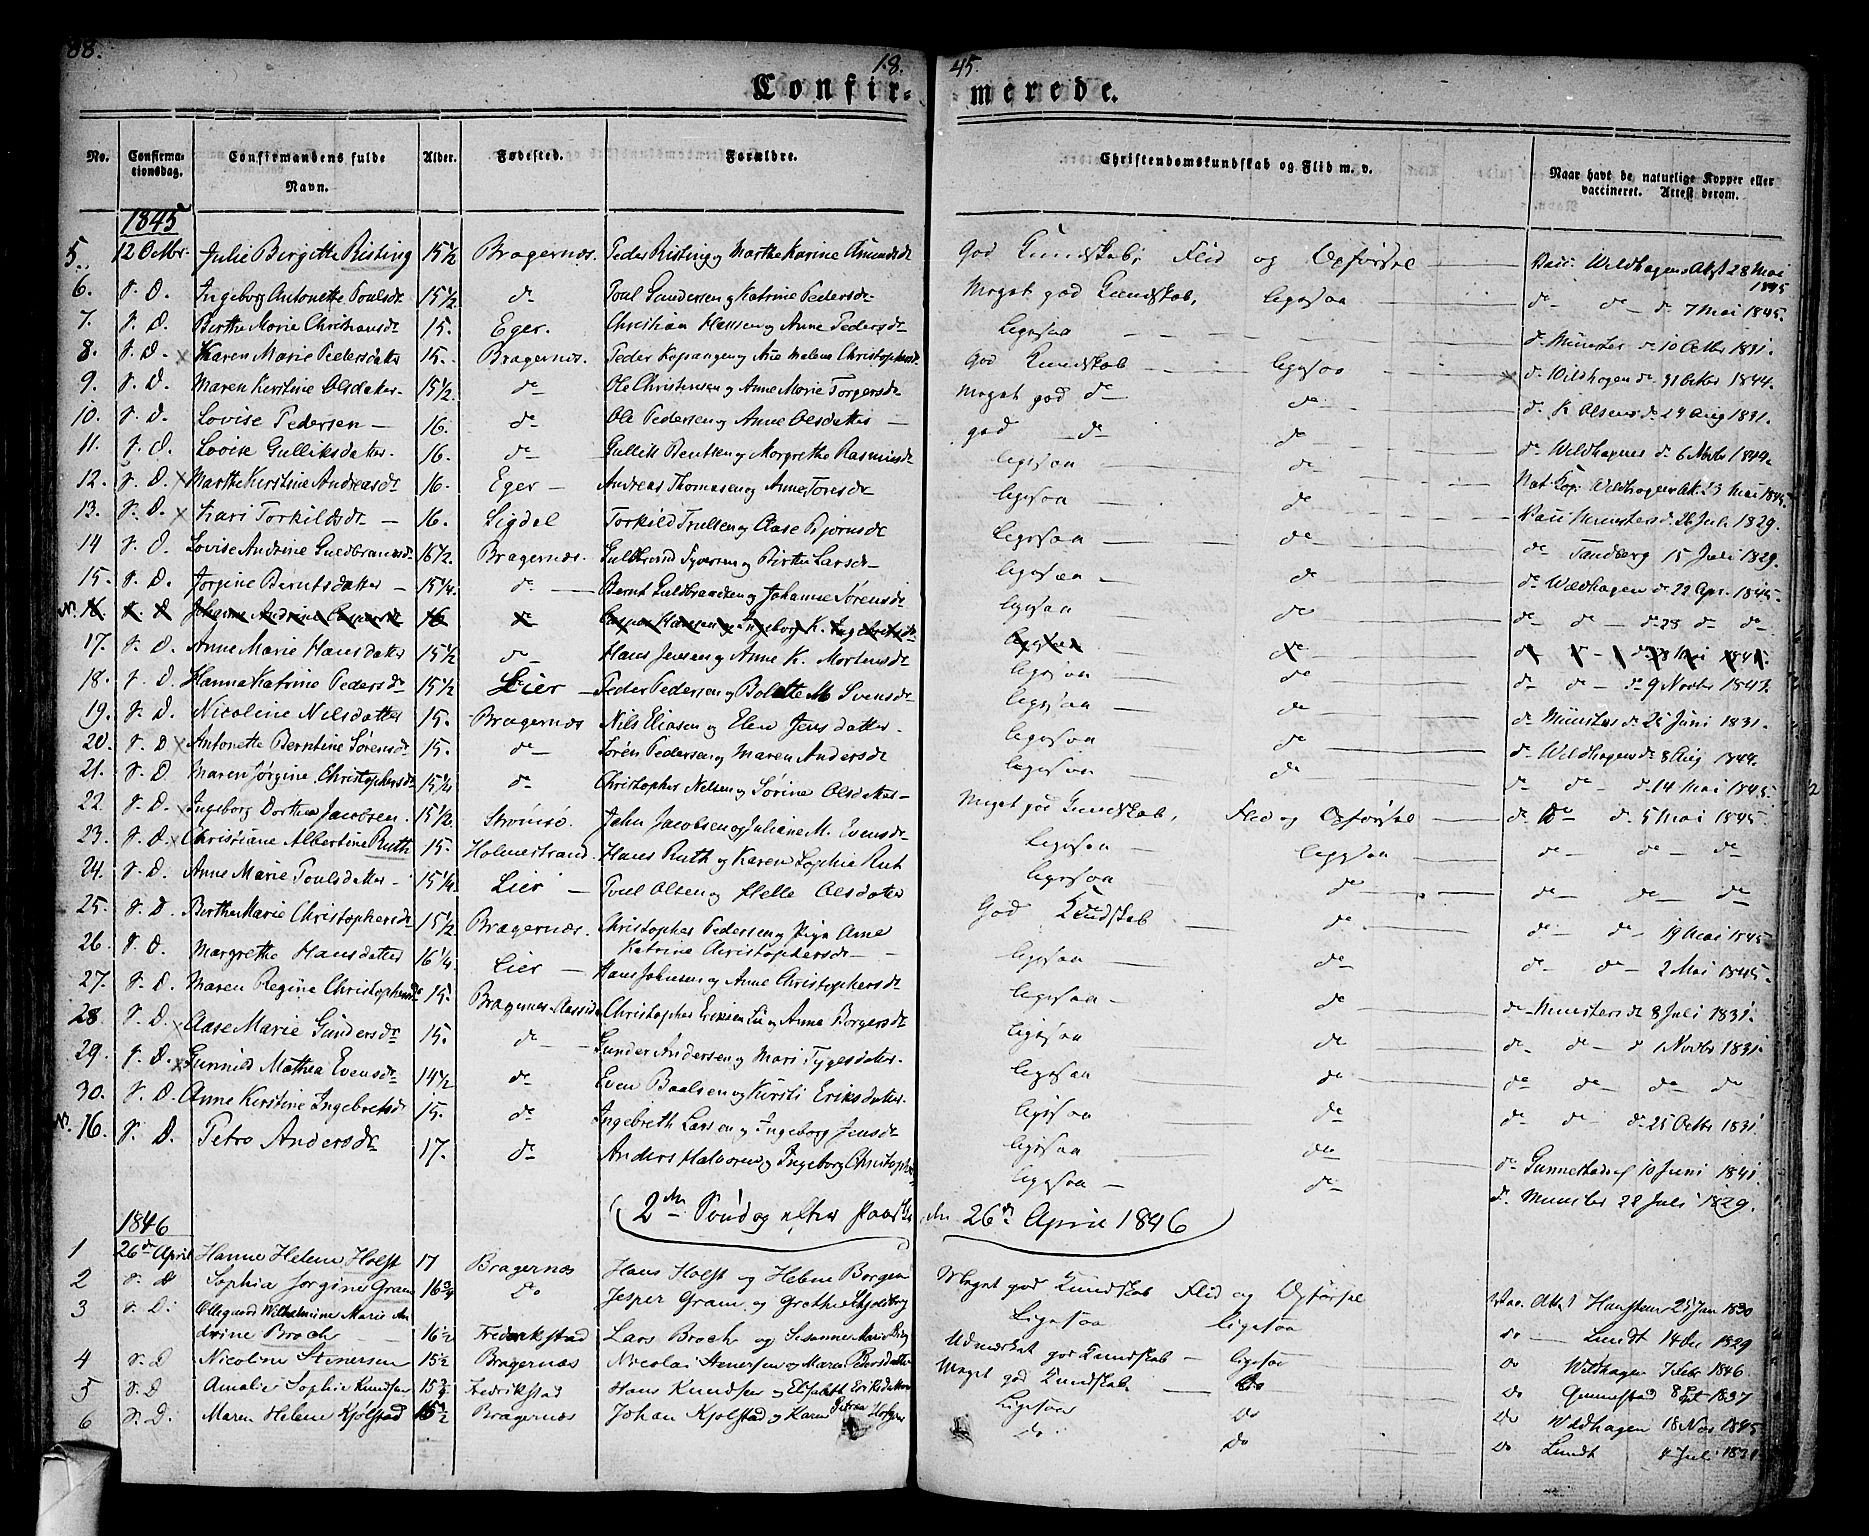 88.
18.
45.
Confir-
merede.
No. Confirma-tionsdag. Confirmandens fulde Navn. Alder. Fødested. Forældre. Christendomskundskab og Flid m. v. Naar havt de naturlige Kopper eller vaccineret. Attest derom.
1845
5. 12 Octbr. Julie Birgitte Risting 15 1/2 Bragernæs. Peder Risting og Marthe Karine Amundsdr God Kundskab, Flid og Opførsel Vacc. Wildhagens Atst 28 Mai 1845
6. s. D. Ingeborg Antonette Poulsdr 15 1/2 do Poul Gundersen og Katrine Pedersdr Meget god Kundskab, ligesaa do do d. 7 Mai 1845.
7. s. D. Birthe Marie Christiansdr 15. Eger. Christian Hansen og Anne Pedersdr ligesaa do Münster do 10 Octbr 1831.
8. s. D. x Karen Marie Pedersdatter 15. Bragernæs. Peder Kopangen og Ane Malene Christophersdr God Kundskab ligesaa do Wildhagen do 31 Octbr 1844.
9. s. D. Maren Kirstine Olsdatter. 15 1/2. do Ole Christensen og Anne Marie Torgersdr Meget god do do do K Olsens do 24 Aug 1831.
10. s. D. Lovise Pedersen 16. do Ole Pedersen og Anne Olsdatter god do do do Wildhagens do 6 Novbr 1842.
11. s. D. Lovise Gulliksdatter. 16. do Gullik Bentsen og Margrethe Rasmusdr ligesaa do Nat. Kop. Wildhagens At. 23 Mai 1845.
12. s. D. x Marthe Kirstine Andreasdr 16. Eger Andreas Thomasen og Anne Toresdr ligesaa do Vacc Munsters d. 26 Juli 1829.
13. s. D. x Kari Torkildsdr 16. Sigdal Torkild Trulsen og Aase Bjørnsdr ligesaa do do Tandberg 15 Juli 1829.
14 s. D. Lovise Andrine Guldbransdr 16 1/2. Bragernæs. Guldbrand Syversen og Birthe Larsdr ligesaa do do Wildhagen do 22 Apr. 1845.
15. s. D. Jorgine Berntsdatter 15 1/4. do Bernt Guldbrandsen og Johanne Sørensdr ligesaa do do do do 28 do do
N. 16 s. D Johanne Andrine Caspersdr 16 do Casper Hansen og Ingeborg K. Ingebretsdr ligesaa do do do d. 8 Mai 1845.
17. s. D. Anne Marie Hansdatter 15 1/2 do Hans Jensen og Anne K. Mortensdr ligesaa do do do do 9 Novbr 1843.
18. s. D. Hanna Katrine Pedersdr 15 1/2 Lier Peder Pedersen og Bolette M Svensdr ligesaa do do Münster do 25 Juni 1831.
19. s. D. Nicoline Nilsdatter 15. Bragernæs Nils Eliasen og Elen Jensdatter. ligesaa do do Wildhagens do 8 Aug 1844.
20. s. D x Antonette Berntine Sørensdr 15. do Søren Pedersen og Maren Andersdr ligesaa do do do do 14 Mai 1845
21. s. D. Maren Jørgine Christophersdr 15 1/4 do Christopher Nelsen og Sørine Olsdatter Meget god Kundskab, Flid og Opførsel do Do d. 5 Mai 1845.
22. s. D. x Ingeborg Dorthea Jacobsen. 15 1/2. Strømsø. John Jacobsen og Juliane M. Evensdr ligesaa ligesaa do do do
23. s. D. x Christiane Albertine Ruth 15. Holmestrand. Hans Ruth og Karen Sophia Rut ligesaa do do do do
24. s. D. Anne Marie Poulsdatter 15 1/4. Lier Poul Olsen og Helle Olsdatter God Kundskab do do do 19 Mai 1845.
25. s. D. Birthe Marie Christophersdr 15 1/2 Bragernæs. Christopher Pedersen og Pige Anne Katrine Christophersdr ligesaa do do do 2 Mai 1845.
26. s. D. Margrethe Hansdatter 16 1/4. Lier Hans Johnsen og Anne Christophersdr ligesaa do do Munsters do 8 Juli 1831.
27. s. D. Maren Regine Christophersdr 15. Bragernæs Aassiden Christopher Eriksen Lie og Anne Borgersdr ligesaa do do do d 1 Novbr 1831.
28. s. D. x Aase Marie Gundersdr 15. do Gunder Andersen og Mari Tygesdatter. ligesaa do do do do do
29. s. D. x Gunnild Mathea Evensdr 14 1/2 do Even Baalsen og Kirsti Eriksdatter. ligesaa do do do d. 25 Octbr 1831
30. s. D. Anne Kirstine Ingebretsdr 15. do Ingebreth Larsen og Ingeborg Jensdr ligesaa do do Gunnestads 10 Juni 1841.
N. 16. s. D. Petro Andersdr 17. do Anders Halvorsen og Ingeborg Christophers ligesaa do d. Munster 28 Juli 1829.
2den Søndag efter Paaske, den 26de April 1846
1846
1 26de April Hanne Helene Holst 17 Bragernæs Hans Holst og Helene Borgen Meget god Kundskab Flid og Opførsel Vac. Attst Hansteen 25 Jan 1830
2 s. D Sophia Jørgine Gram 16 3/4 Do Jesper Gram og Grethe Skjoldborg Ligesaa Ligesaa Do Lundt 14 Dec 1829
3 s. D. Ollegaard Wilhelmine Marie Andrine Broch 16 1/2 Frederikstad Lars Broch og Susanne Marie Udmærket god Kundskab ligesaa Do Wildhagen 7 Febr 1846.
4 s. D Nicoline Stenersen 15 1/2 Bragernæs Nicolai Stenersen og Maren Pedersdatter Meget god Kundskab Do Do Gunnestad 8 Spt 1837
5 s. D Amalie Sophie Knudsen 15 3/4 Fredrikstad Hans Knudsen og Elisabeth Eriksdatter Ligesaa Do Do Wildhagen 18 Nov 1845
6 s. D. Maren Helene Kjølstad 15 1/2 Bragernæs Johan Kjølstad og Karen Petrea Hofgaa Do Do Do Lundt 4 Juli 1831